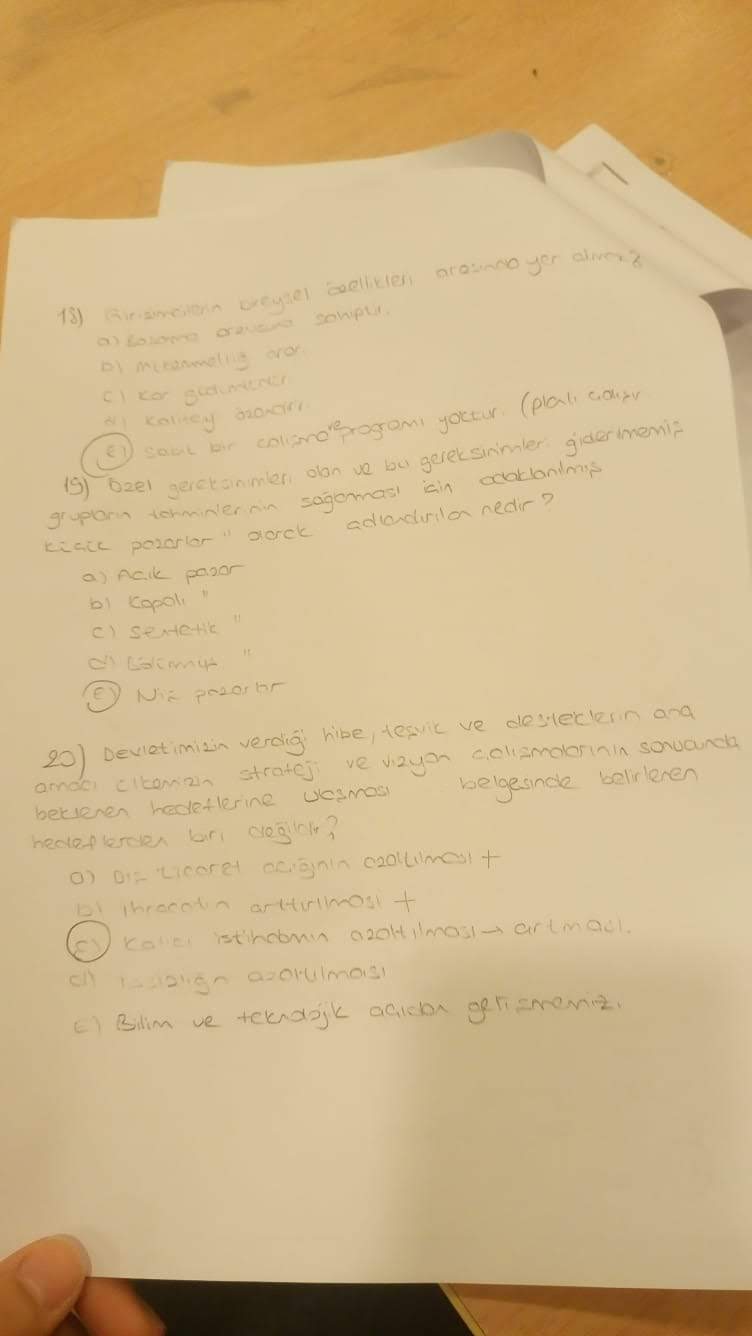 18) Girişimcilerin bireysel özellikleri arasında yer almaz?
a) Başarma arzusuna sahiptir.
b) Mükemmelliği arar.
c) Kar
d) Kaliteyi
e) Sabit bir çalışma ve programı yoktur. (planlı çalışır
19) Özel gereksinimleri olan ve bu gereksinimleri giderilmemiş
grupların tahminlerinin sağlanması için odaklanılmış
küçük pazarlar" olarak adlandırılan nedir?
a) Açık pazar
b) Kapalı "
c) Sentetik "
d) "
e) Niş pazarlar
20) Devletimizin verdiği hibe, teşvik ve desteklerin ana
amacı ülkemizin strateji ve vizyon çalışmalarının sonucunda
beklenen hedeflerine ulaşması belgesinde belirlenen
hedeflerden biri değildir?
a) Dış ticaret açığının azaltılması +
b) ihracatın arttırılması +
c) Kalıcı istihdamın azaltılması → artmacı.
d) İşsizliğin azaltılması
e) Bilim ve teknolojik açıdan gelişmemiz.